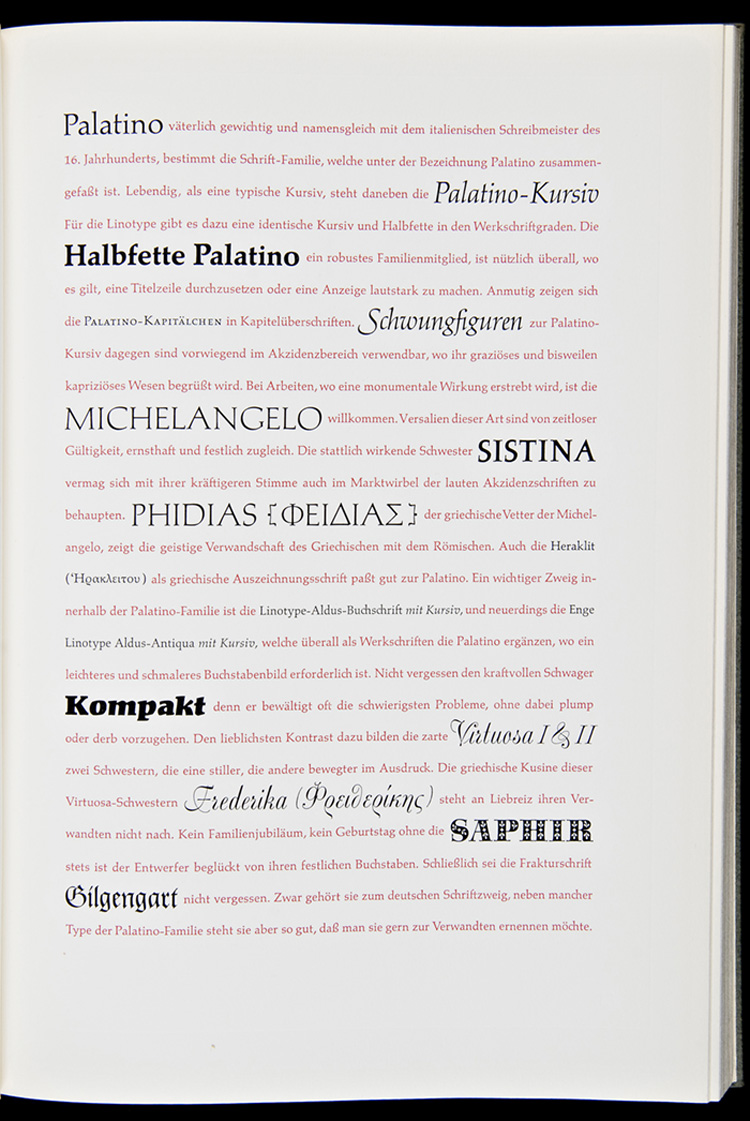 Palatino väterlich gewichtig und namensgleich mit dem italienischen Schreibmeister des
16. Jahrhunderts, bestimmt die Schrift-Familie, welche unter der Bezeichnung Palatino zusammen-
gefaßt ist. Lebendig, als eine typische Kursiv, steht daneben die Palatino-Kursiv
Für die Linotype gibt es dazu eine identische Kursiv und Halbfette in den Werkschriftgraden. Die
Halbfette Palatino ein robustes Familienmitglied, ist nützlich überall, wo
es gilt, eine Titelzeile durchzusetzen oder eine Anzeige lautstark zu machen. Anmutig zeigen sich
die Palatino-Kapitälchen in Kapitelüberschriften. Schwungfiguren zur Palatino-
Kursiv dagegen sind vorwiegend im Akzidenzbereich verwendbar, wo ihr graziöses und bisweilen
kapriziöses Wesen begrüßt wird. Bei Arbeiten, wo eine monumentale Wirkung erstrebt wird, ist die
MICHELANGELO willkommen. Versalien dieser Art sind von zeitloser
Gültigkeit, ernsthaft und festlich zugleich. Die stattlich wirkende Schwester SISTINA
vermag sich mit ihrer kräftigeren Stimme auch im Marktwirbel der lauten Akzidenzschriften zu
behaupten. PHIDIAS {ΦΕΙΔΙΑΣ} der griechische Vetter der Michel-
angelo, zeigt die geistige Verwandschaft des Griechischen mit dem Römischen. Auch die Heraklit
(Ἡρακλειτου) als griechische Auszeichnungsschrift paßt gut zur Palatino. Ein wichtiger Zweig in-
nerhalb der Palatino-Familie ist die Linotype-Aldus-Buchschrift mit Kursiv, und neuerdings die Enge
Linotype Aldus-Antiqua mit Kursiv, welche überall als Werkschriften die Palatino ergänzen, wo ein
leichteres und schmaleres Buchstabenbild erforderlich ist. Nicht vergessen den kraftvollen Schwager
Kompakt denn er bewältigt oft die schwierigsten Probleme, ohne dabei plump
oder derb vorzugehen. Den lieblichsten Kontrast dazu bilden die zarte Virtuosa I & II
zwei Schwestern, die eine stiller, die andere bewegter im Ausdruck. Die griechische Kusine dieser
Virtuosa-Schwestern Frederika (Φρειδερίκης) steht an Liebreiz ihren Ver-
wandten nicht nach. Kein Familienjubiläum, kein Geburtstag ohne die SAPHIR
stets ist der Entwerfer beglückt von ihren festlichen Buchstaben. Schließlich sei die Frakturschrift
Gilgengart nicht vergessen. Zwar gehört sie zum deutschen Schriftzweig, neben mancher
Type der Palatino-Familie steht sie aber so gut, daß man sie gern zur Verwandten ernennen möchte.